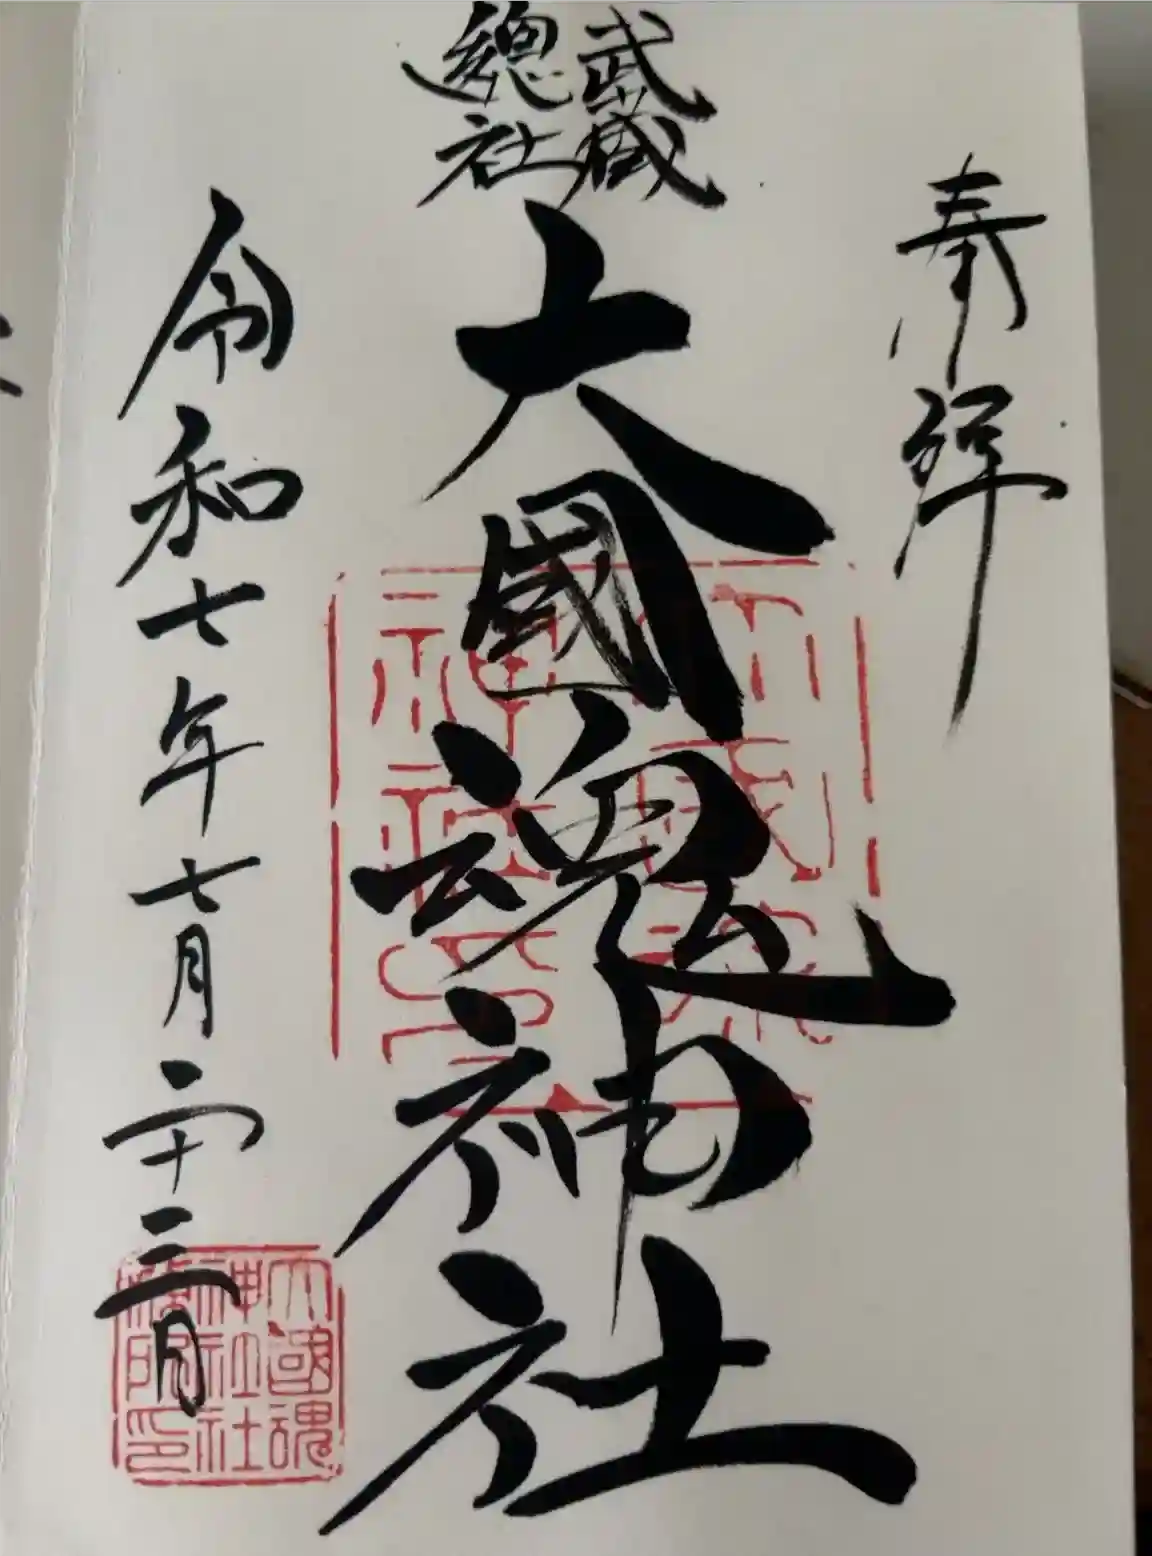 奉拝
武蔵
總社
大國魂神社
令和七年七月二十三日
大國魂
神社社
印